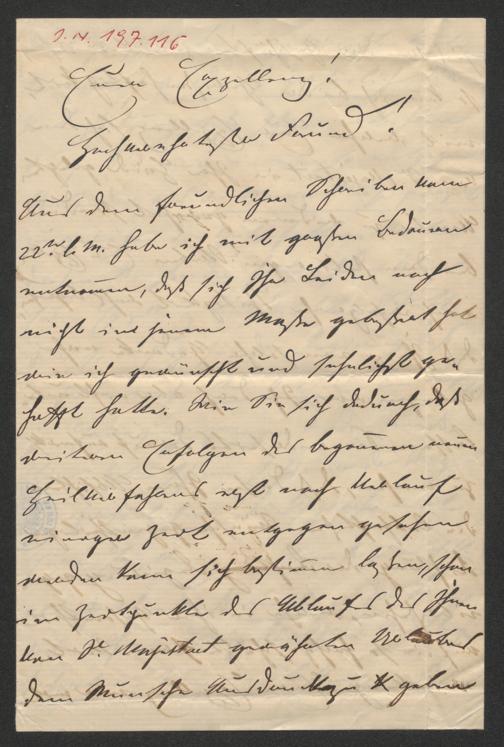 I.N. 197.116
Eure Exzellenz!
Hochverehrtester Freund!
Aus dem freundlichen Schreiben vom
22ten l. M. habe ich mit großem Bedauern
entnommen, daß sich Ihr Leiden noch
nicht in jenem Maße gebessert hat
wie ich gewünscht und sehnlichst ge-
hofft hatte. Wie Sie sich dadurch, daß
weiteren Erfolgen des begonnenen neuen
Heilverfahrens erst nach Ablauf
einiger Zeit entgegen gesehen
werden kann sich bestimmen lassen, schon
im Zeitpunkte des Ablaufes des Ihnen
von Sr. Majestät gewährten Urlaubes
dem Wunsche Ausdruck zu geben